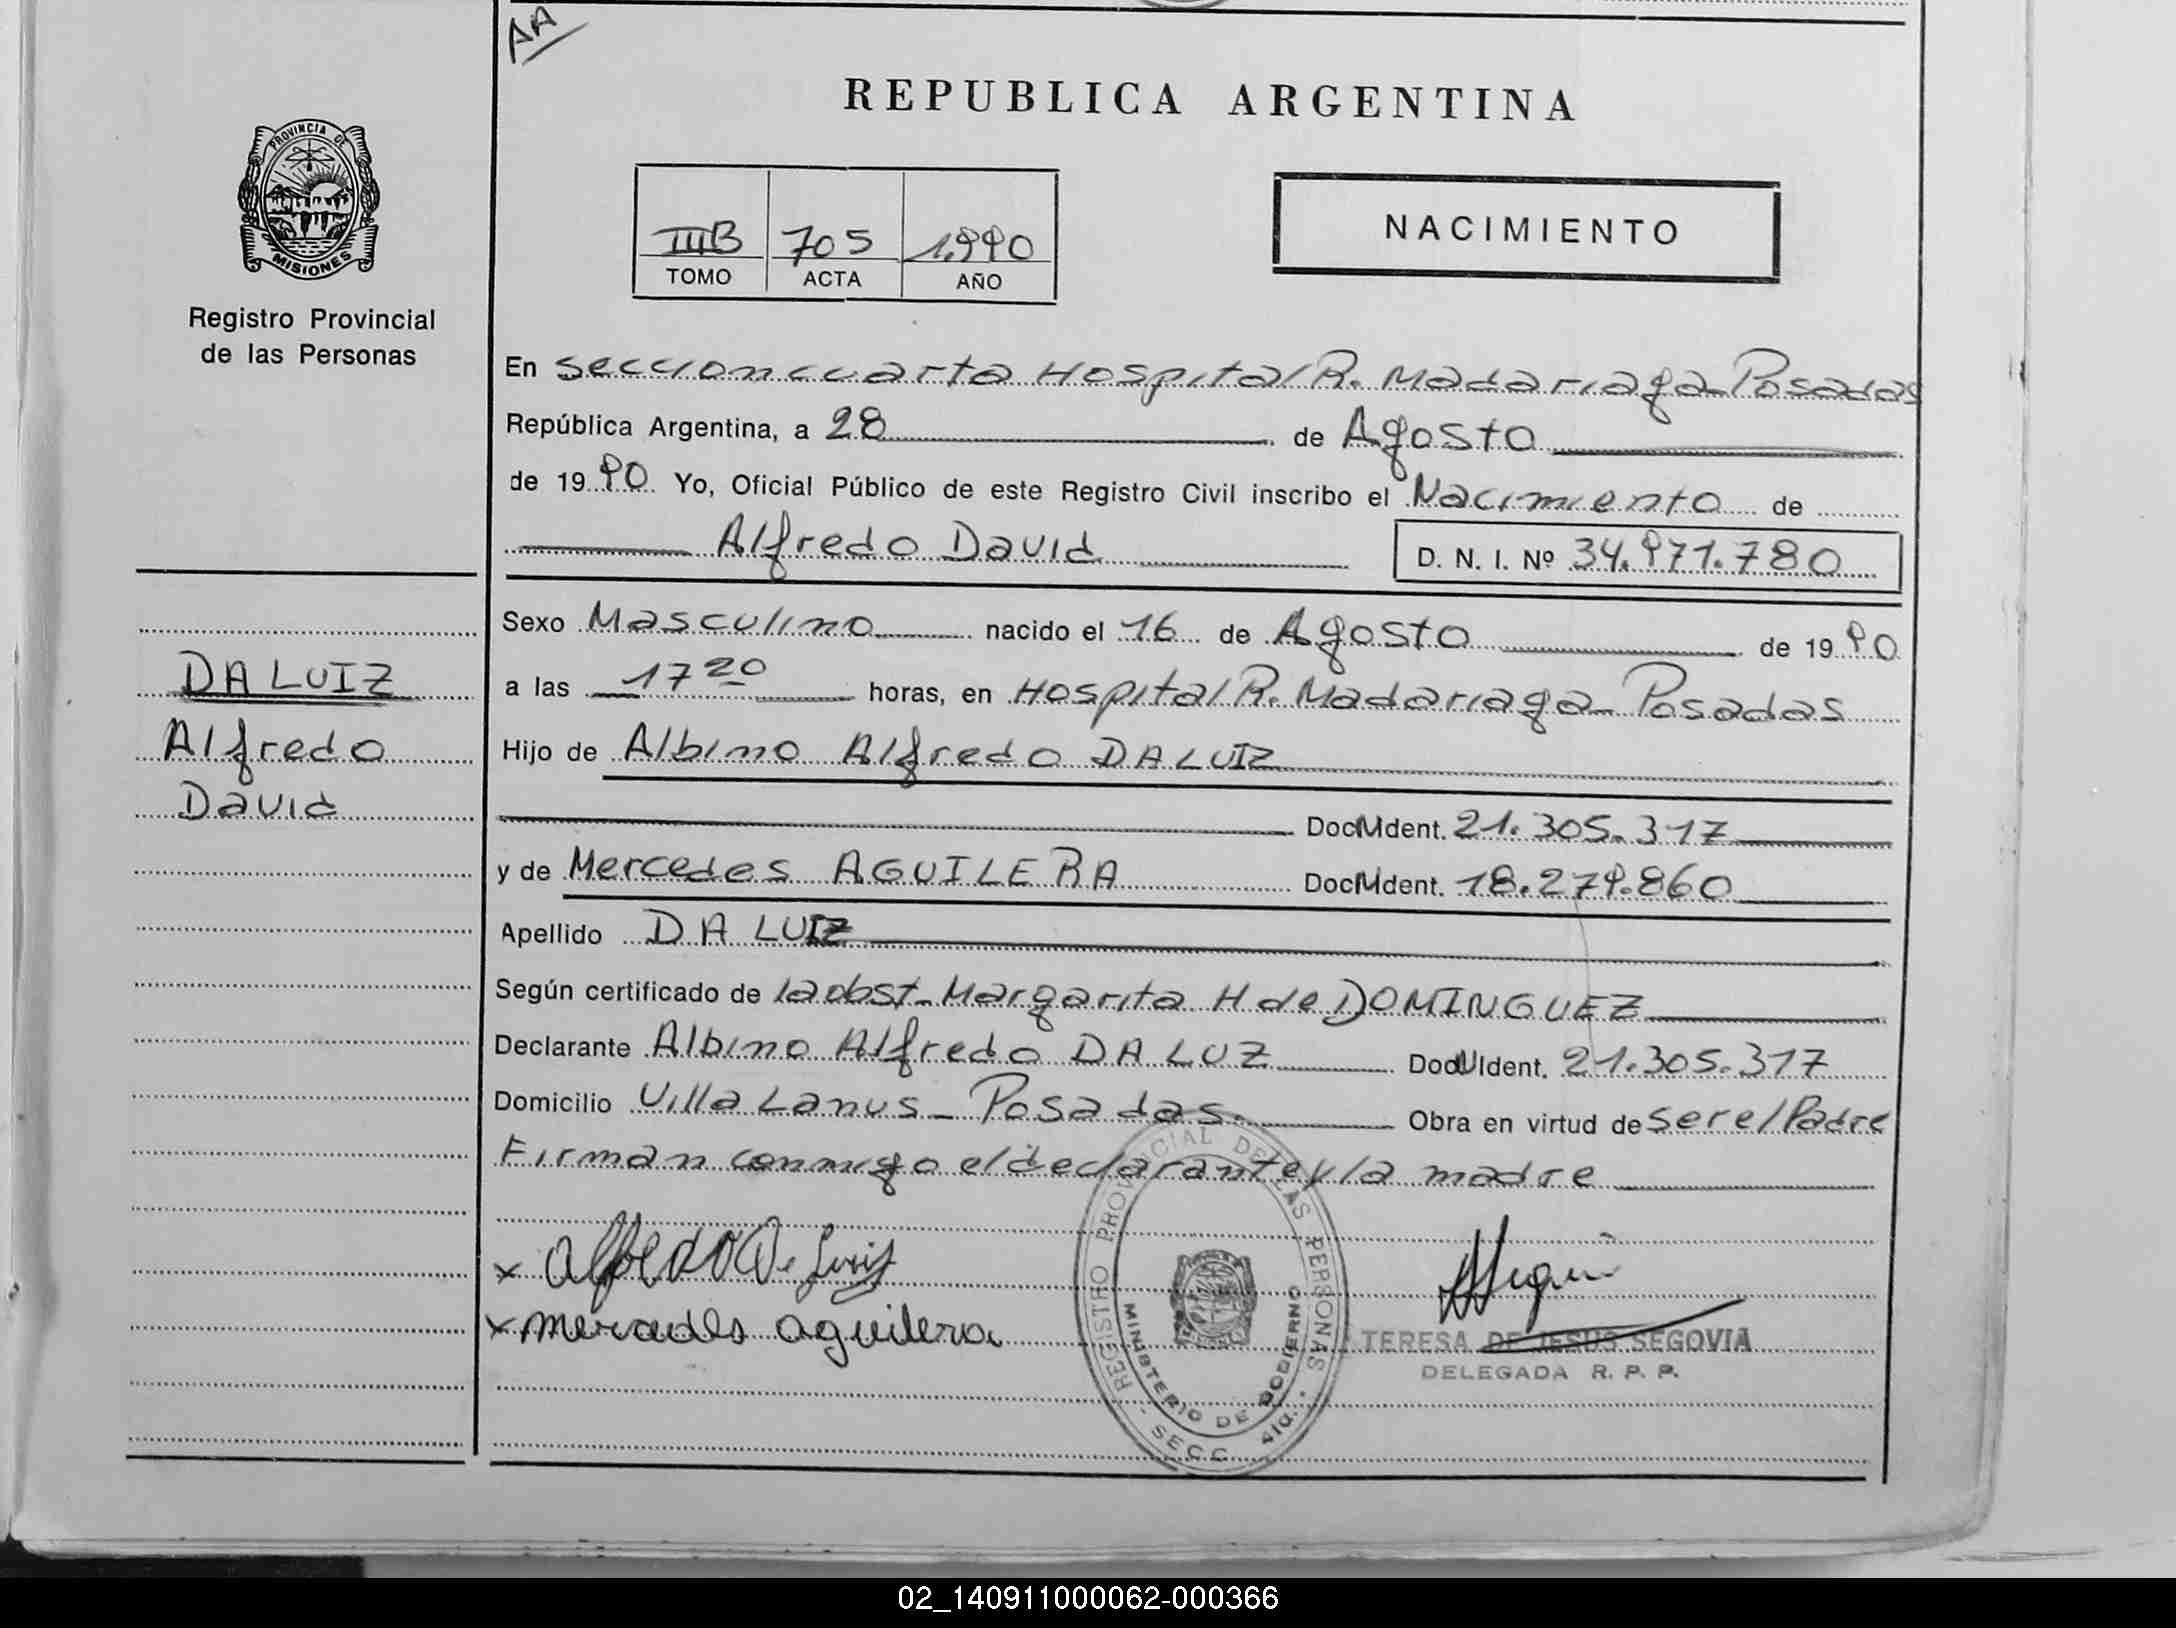 AA
REPUBLICA ARGENTINA
PROVINCIA DE
MISIONES
Registro Provincial
de las Personas
IIIB 705 1.990
TOMO ACTA AÑO
NACIMIENTO
En seccion cuarta Hospital R. Madariaga - Posadas
República Argentina, a 28 de Agosto
de 1990 Yo, Oficial Público de este Registro Civil inscribo el Nacimiento de
Alfredo David D. N. I. Nº 34.971.780
DA LUIZ
Alfredo
David
Sexo Masculino nacido el 16 de Agosto de 1990
a las 17 20 horas, en Hospital R. Madariaga - Posadas
Hijo de Albino Alfredo DA LUIZ
Doc. Ident. 21.305.317
y de Mercedes AGUILERA Doc. Ident. 18.279.860
Apellido DA LUIZ
Según certificado de la obst. Margarita H de DOMINGUEZ
Declarante Albino Alfredo DA LUZ Doc. Ident. 21.305.317
Domicilio Villa Lanus - Posadas. Obra en virtud de ser el Padre
Firman conmigo el declarante y la madre
x Alfredo Da Luis
x mercedes aguilera
REGISTRO PROVINCIAL DE LAS PERSONAS
MINISTERIO DE GOBIERNO
SECC. 4ta.
TERESA DE JESUS SEGOVIA
DELEGADA R. P. P.
02_140911000062-000366